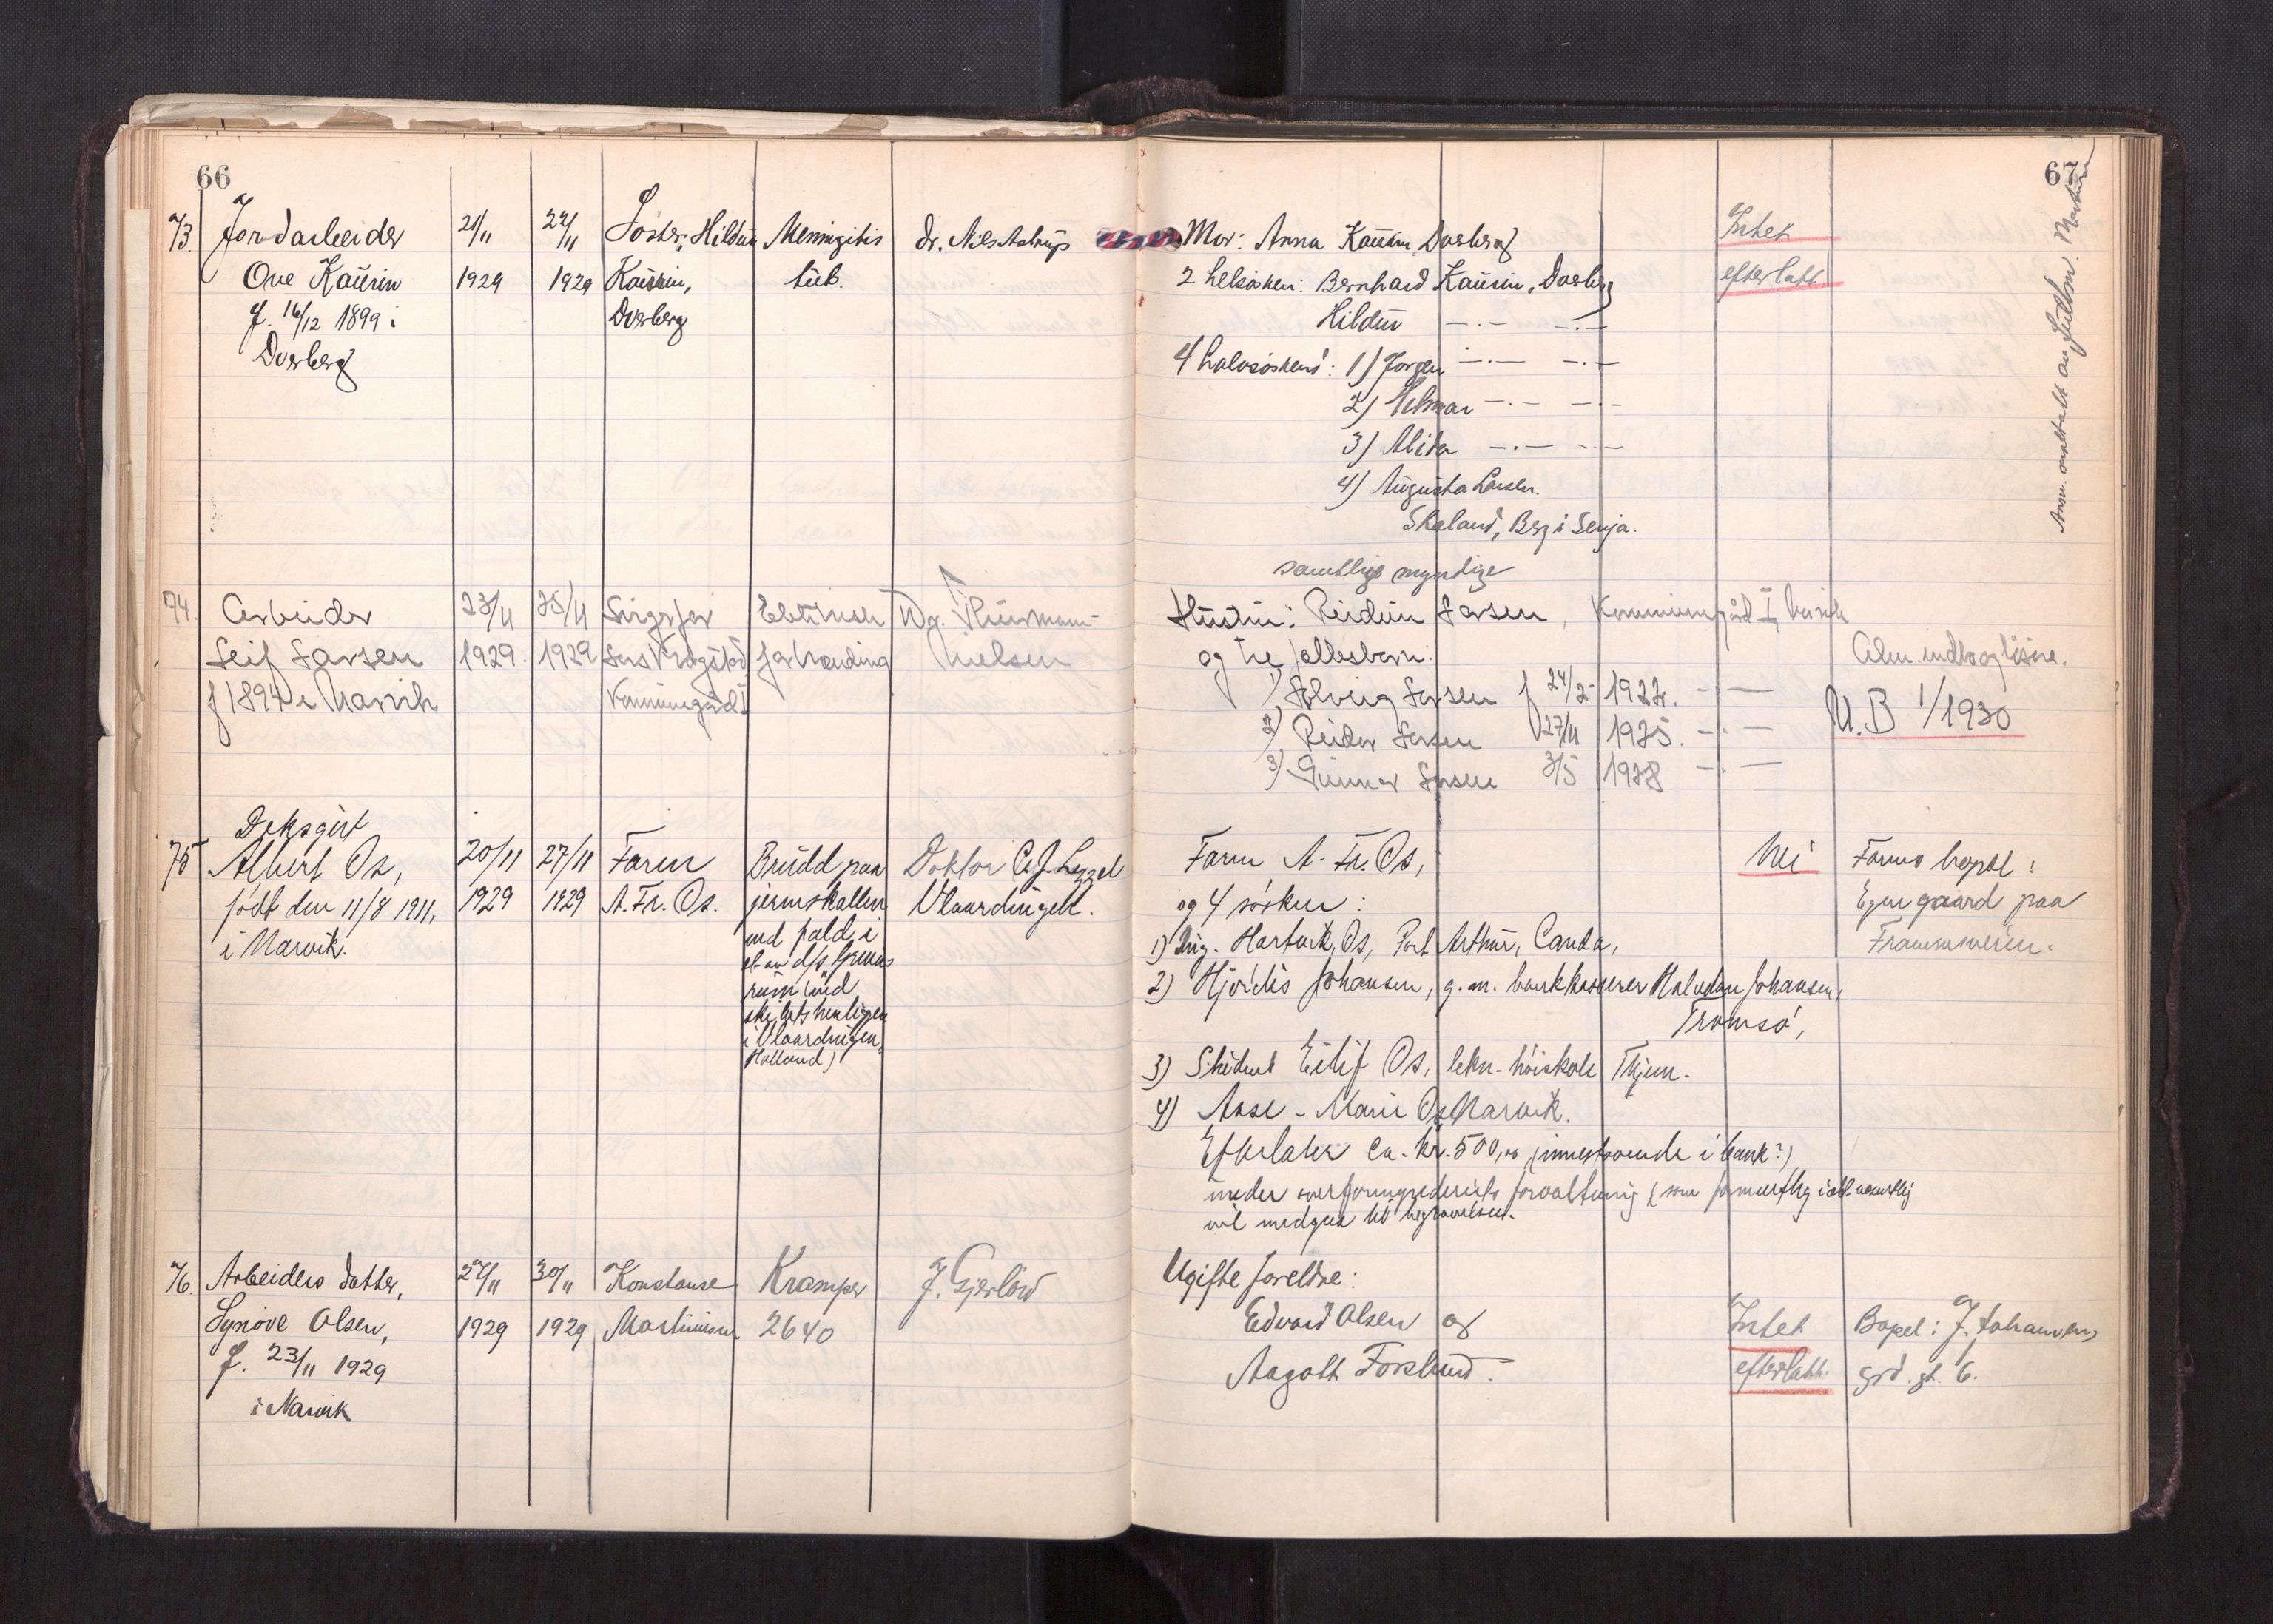 66
73. Jordarbeider
Ove Kaurin
f. 16/12 1899 i
Dverberg
21/11
1929
22/11
1929
Söster, Hildur
Kaurin,
Dverberg
Meningitis
tub.
Dr. Nils Astrup
74. Arbeider
Leif Larsen
f 1894 i Narvik
23/11
1929.
25/11
1929
Svigerfar
Lars Krogstad
Kommunegård I
forbrending
Dr. Thurmann-
Nielsen
75 Dæksgut
Albert Os,
födt den 11/8 1911,
i Narvik.
20/11
1929
27/11
1929
Faren
A. Fr. Os.
Brudd paa
jerneskallen
ved fald i
rum (ved
i Vlaardingen,
Holland)
Doktor
Vlaardingen.
76. Arbeiders datter,
Synöve Olsen,
f. 23/11 1929
i Narvik
27/11
1929
30/11
1929
Konstanse
Martinusen
Kramper
2640
J. Gjerlöw
67
Mor: Anna Kaurin, Dverberg
2 helsösken: Bernhard Kaurin, Dverberg
Hildur —.— —.—
4 halvsösken: 1) Jörgen —.— —.—
2) Hilmar —.— —.—
3) Alida —.— —.—
4) Augusta Larsen.
Skaland, Berg i Senja.
samtlige myndige
Intet
efterlatt
Anm. mottatt av fullm. Martin
Hustru: Reidun Larsen, Kommunegård I, Narvik
og tre fellesbarn:
1) Solveig Larsen f 24/2 1922. —.—
2) Reidar Larsen 27/11 1925. —.—
3) Gunnar Larsen 3/5 1928 —.—
Alm. indbo og lösöre.
U.B 1/1930
Faren A. Fr. Os,
og 4 sösken:
1) Ing. Hartvik Os, Port Arthur, Canda,
2) Hjördis Johansen, g.m. bankkasserer Halvdan Johansen,
Tromsö,
3) Student Eilif Os, tekn. höiskole Thjem.
4) Aase-Marie Os, Narvik.
Efterlater ca. kr. 500,00 (innestaaende i bank?)
under overformynderiets forvaltning (som formentlig i alt vesentlig
vil medgaa til begravelsen.
Nei
Farens bopel:
Egen gaard paa
Frammneien.
Ugifte foreldre:
Edvard Olsen og
Aagott Forslund.
Intet
efterlatt.
Bopel: J. Johansens
grd. gt. 6.